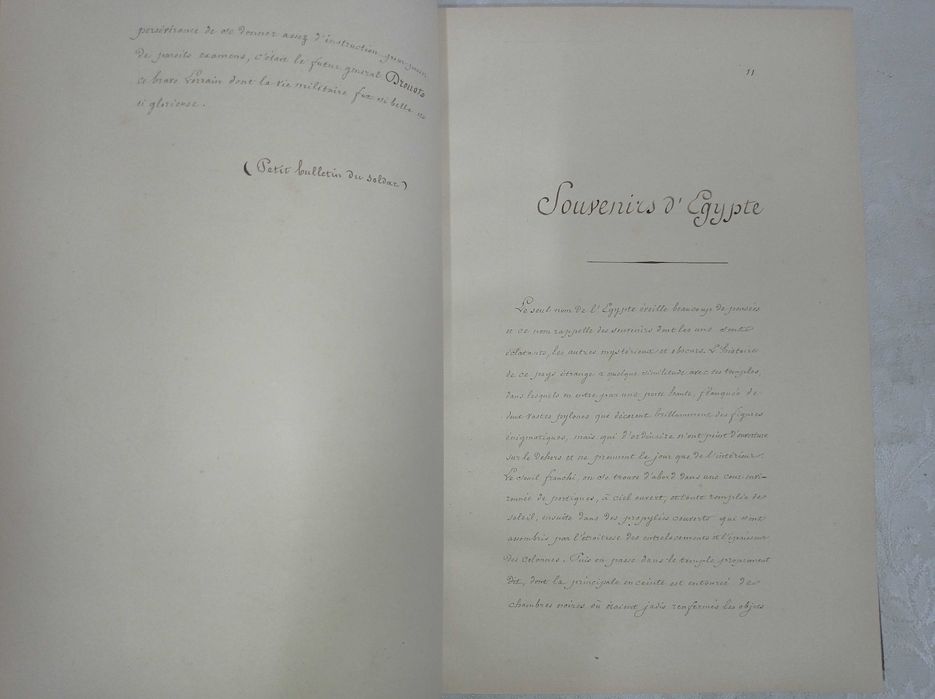 persévérance de se donner assez d'instruction pour
de pareils examens, c'était le futur général Drouot
ce brave Lorrain dont la vie militaire fut si belle
si glorieuse.
(Petit bulletin du soldat)
11
Souvenirs d'Egypte
Le seul nom de l'Egypte éveille beaucoup de pensées
et ce nom rappelle des souvenirs dont les uns sont
éclatants, les autres mystérieux et obscurs. L'histoire
de ce pays étrange a quelque similitude avec ses temples,
dans lesquels on entre par une porte haute, flanquée de
deux vastes pylones que décorent brillamment des figures
énigmatiques, mais qui d'ordinaire n'ont point d'ouverture
sur le dehors et ne prennent le jour que de l'intérieur.
Le seuil franchi, on se trouve d'abord dans une cour envi-
ronnée de portiques, à ciel ouvert, et toute remplie de
soleil; ensuite dans des propylées couverts qui sont
assombris par l'étroitesse des entrelacements et l'épaisseur
des colonnes. Puis on passe dans le temple proprement
dit, dont la principale enceinte est entourée de
chambres noires où étaient jadis renfermés les objets